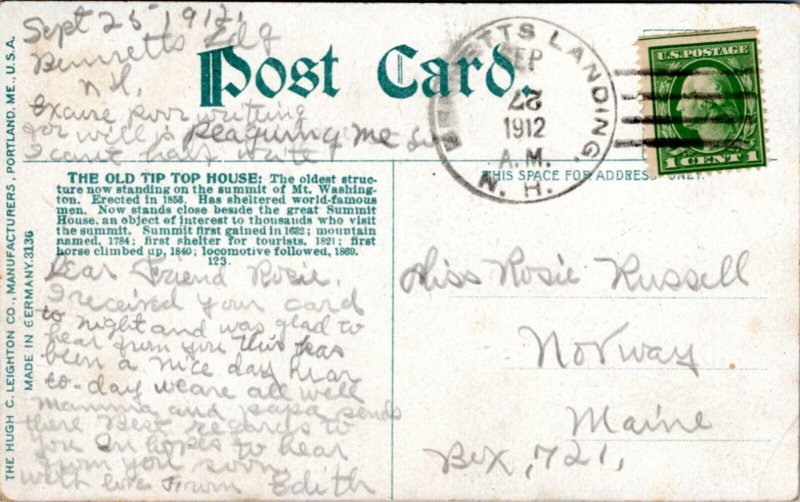 Sept 25 1912,
Bennetts Ldg
N.H,
Excuse poor writing
for will is pleaguring me so
I cant half write
Post Card.
BENNETTS LANDING,
SEP
1912
A.M.
N. H.
U.S. POSTAGE
1 CENT 1
THE OLD TIP TOP HOUSE: The oldest struc-
ture now standing on the summit of Mt. Washing-
ton. Erected in 1853. Has sheltered world-famous
men. Now stands close beside the great Summit
House, an object of interest to thousands who visit
the summit. Summit first gained in 1632; mountain
named, 1784; first shelter for tourists, 1821; first
horse climbed up, 1840; locomotive followed, 1869.
123.
THIS SPACE FOR ADDRESS ONLY.
Dear Friend Rosie.
I received your card
to night and was glad to
hear from you this has
been a nice day hear
to-day we are all well
mamma and papa sends
there Best regards to
you In hopes to hear
from you soon
with love From Edith
Miss Rosie Russell
Norway
Maine
Box, 721,
THE HUGH C. LEIGHTON CO., MANUFACTURERS, PORTLAND, ME., U.S.A.
MADE IN GERMANY. 3136